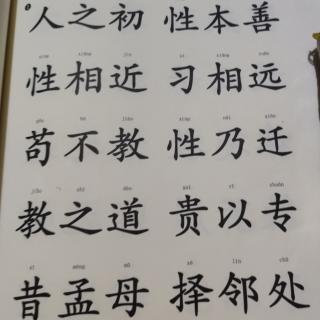 人之初 性本善
xìng xiāng jìn xí xiāng yuǎn
性相近 习相远
gǒu bú jiào xìng nǎi qiān
苟不教 性乃迁
jiào zhī dào guì yǐ zhuān
教之道 贵以专
xī mèng mǔ zé lín chǔ
昔孟母 择邻处